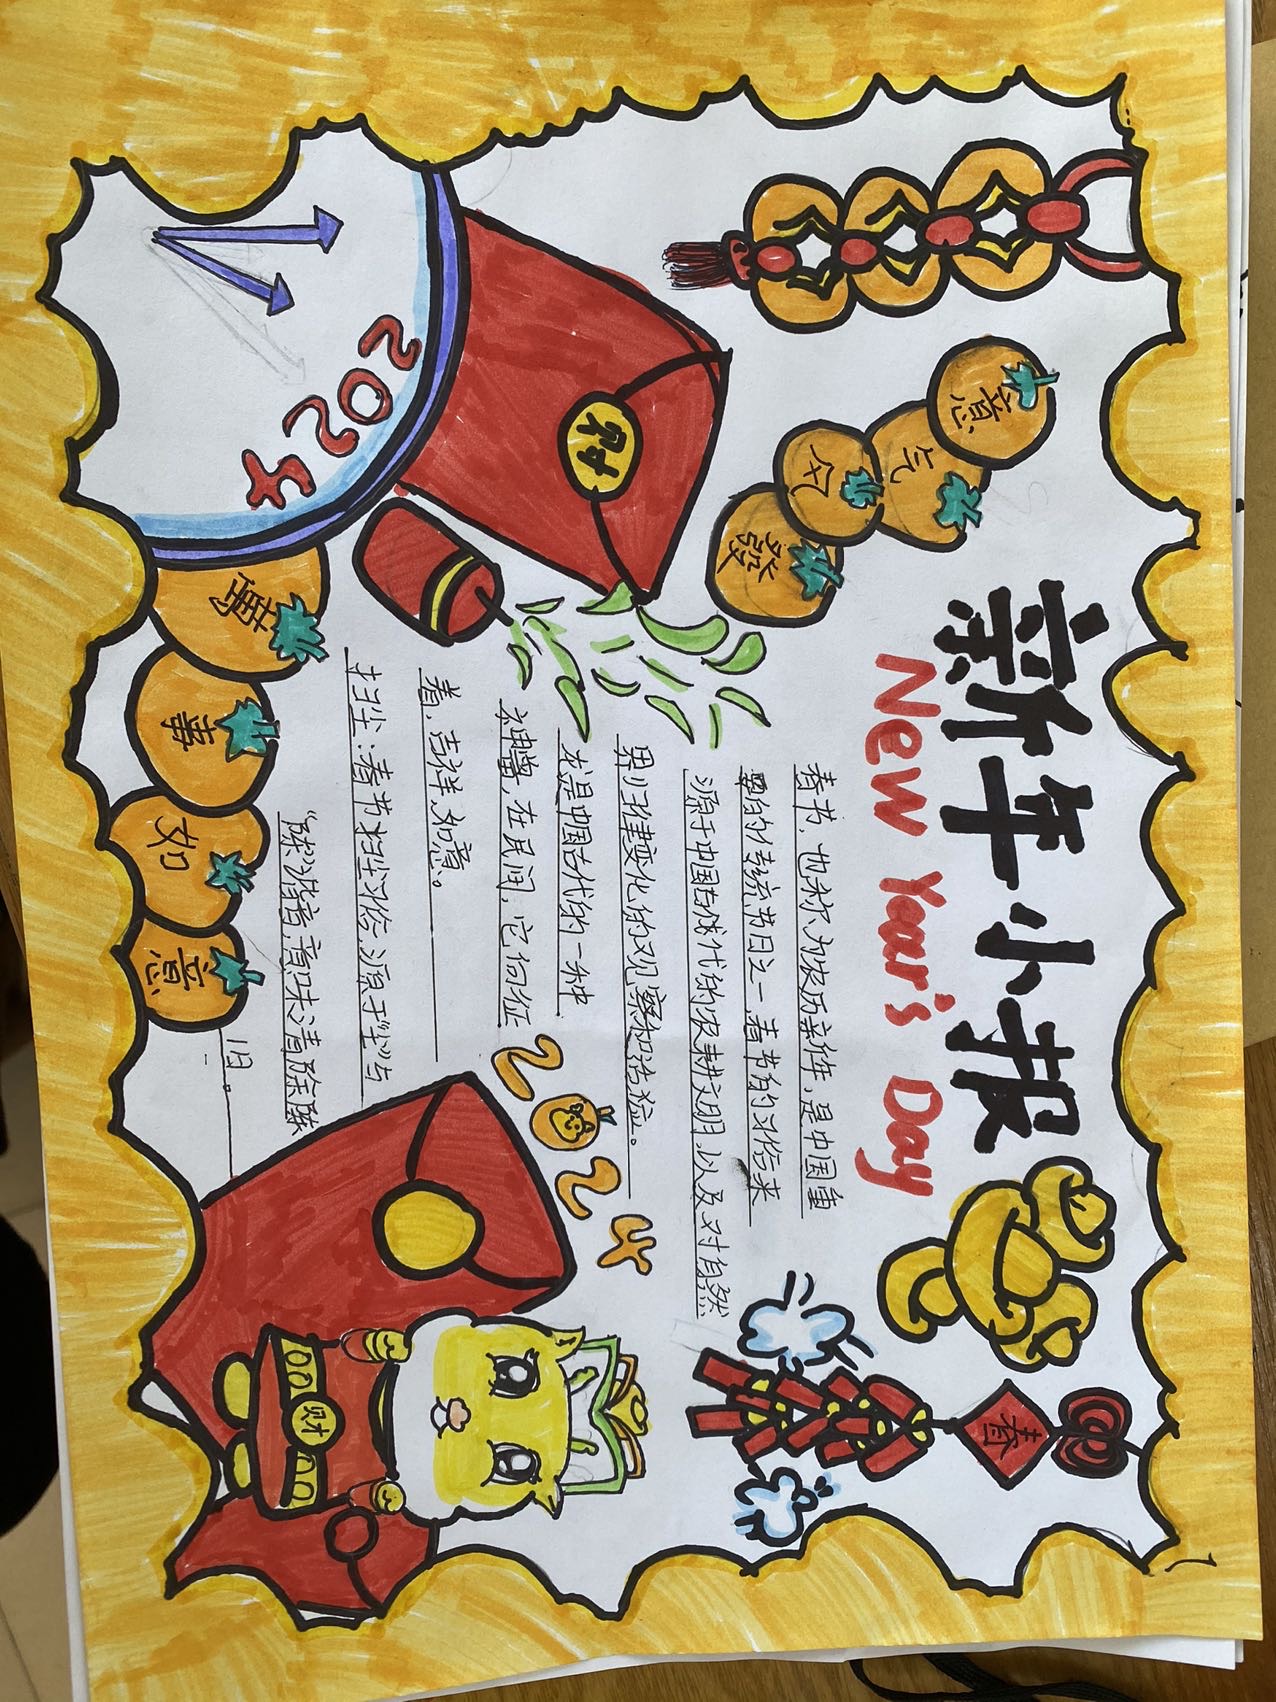 新年小报
New Year's Day
意
气
风
發
春
春书，也称为农历新年，是中国重
要的传统节日之一春节的习俗来
源于中国古代的农耕文明,以及对自然
界归律变化的观察和
龙是中国古代的一种
神兽，在民间，它何征
着，吉祥,如意。
扫尘：春节扫尘习俗,源于"尘"与
"陈"谐音，意味清除陈
旧。
2024
2024
财
萬
事
如
意